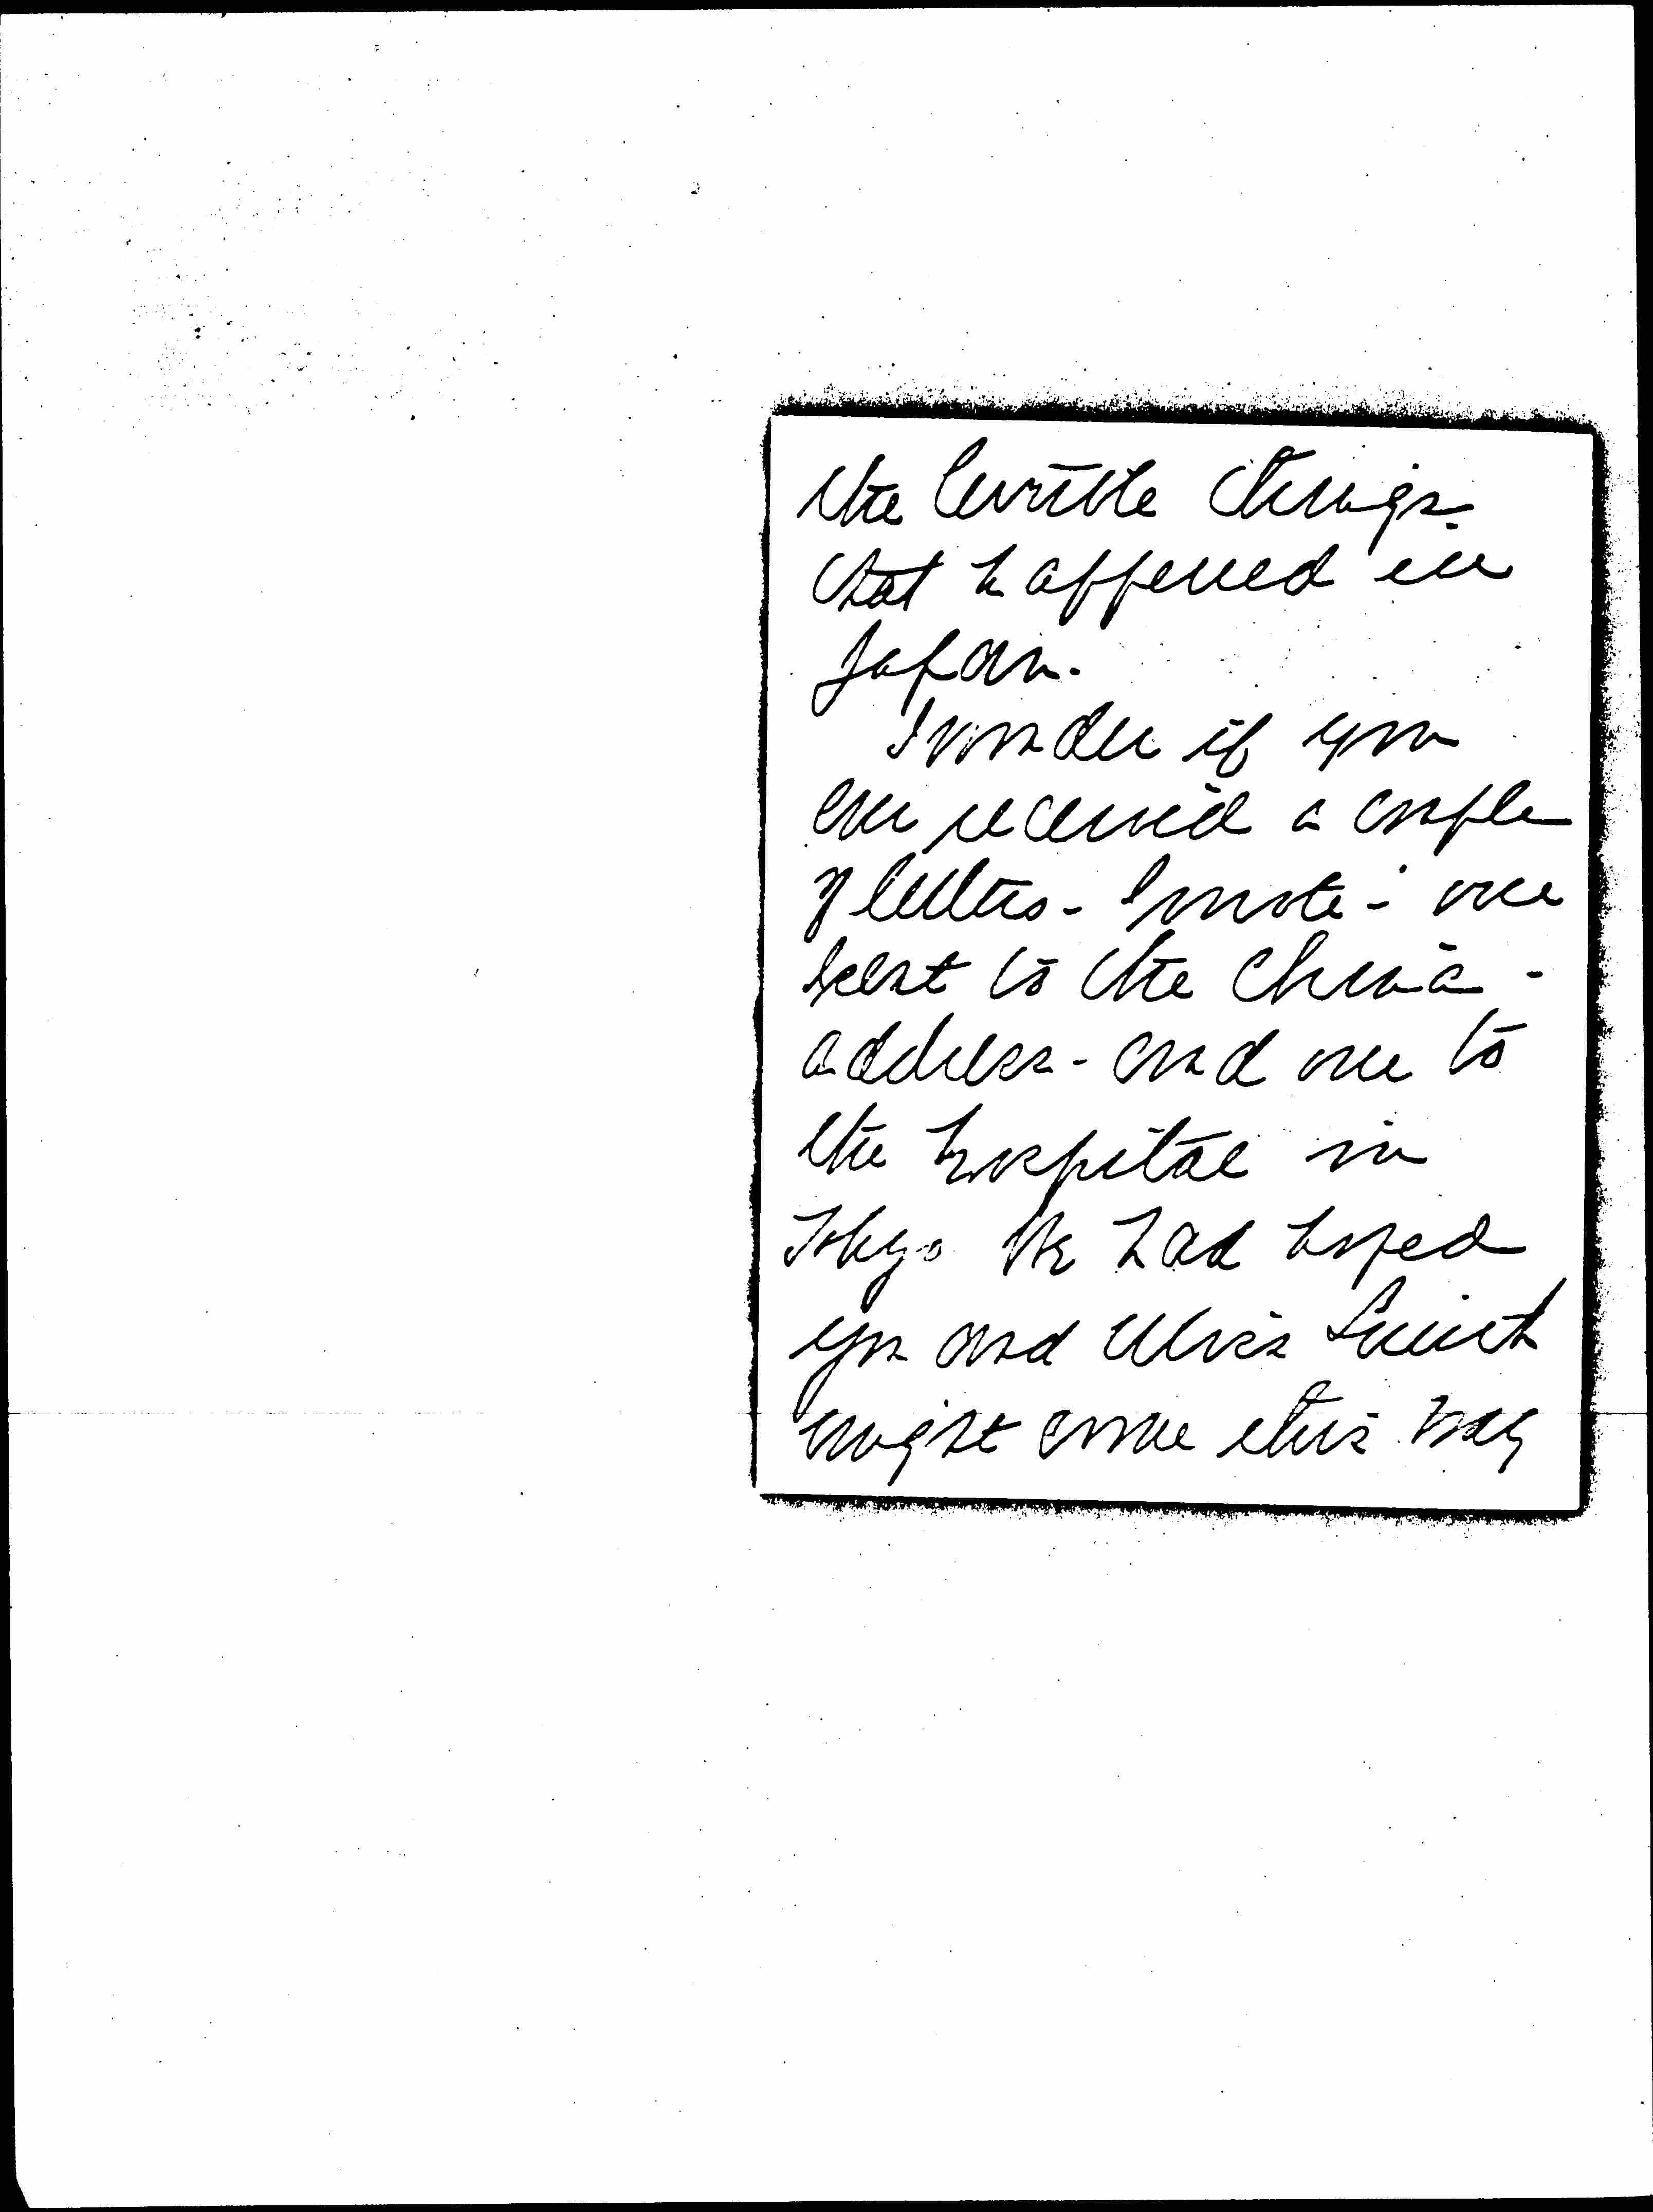 the terrible things
that happened in
Japan.
I wonder if you
ever received a couple
of letters - I wrote - one
sent to the China -
address - and one to
the hospital in
Tokyo We had hoped
you and Miss Smith
might come this way